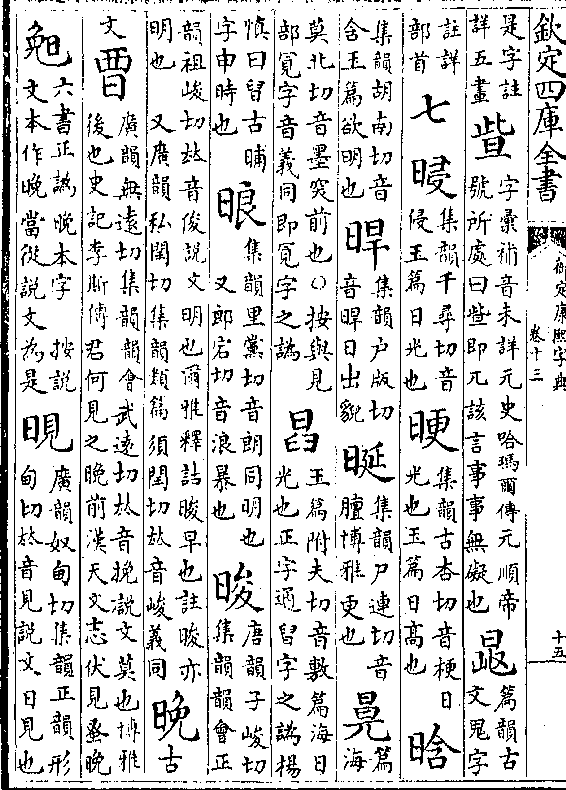 欽定四庫全書
御定康熙字典
卷十三
十五
是字註
詳五畫
字彙補音未詳元史哈瑪爾傳元順帝
號所處曰些即兀該言事事無礙也
篇韻古
文冕字
註詳
部首
七
集韻千尋切音
侵玉篇日光也
集韻古杏切音梗日
光也玉篇日高也
晗
集韻胡南切音
含玉篇欲明也
晘
集韻户版切
音睅日出貌
集韻尸連切音
膻博雅更也
篇
海
莫北切音墨突前也○按與見
部冐字音義同即冐字之譌
玉篇附夫切音敷篇海日
光也正字通㫪字之譌楊
慎曰㫪古晡
字申時也
㫰
集韻里黨切音朗同明也
又郎宕切音浪暴也
晙
唐韻子峻切
集韻韻會正
韻祖峻切𠀤音俊說文明也爾雅釋詁晙早也註晙亦
明也 又廣韻私閏切集韻類篇須閏切𠀤音峻義同
晚
古
文
廣韻無遠切集韻韻會武遠切𠀤音挽說文莫也博雅
後也史記李斯傳君何見之晚前漢天文志伏見蚤晚
六書正譌晚本字 按說
文本作晚當從說文為是
晛
廣韻奴甸切集韻正韻形
甸切𠀤音見說文日見也